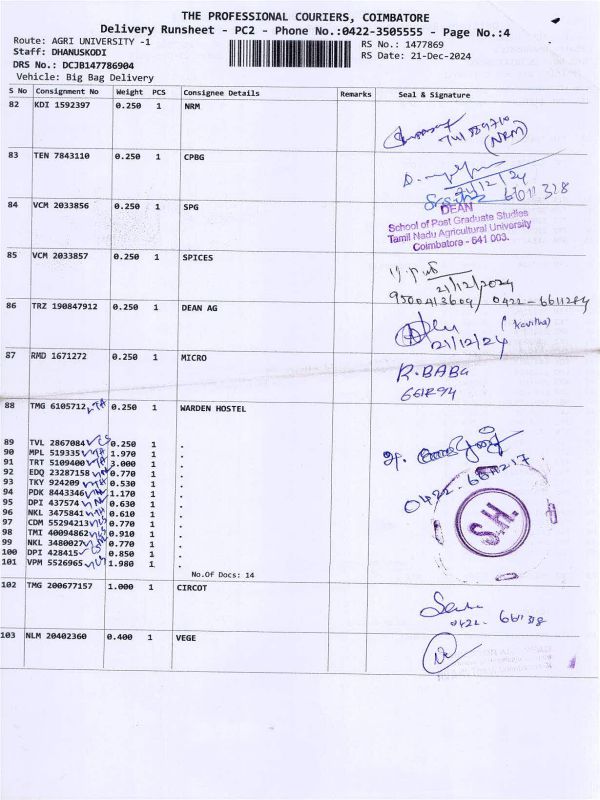 THE PROFESSIONAL COURIERS, COIMBATORE
Delivery Runsheet - PC2 - Phone No.:0422-3505555 - Page No.:4
Route: AGRI UNIVERSITY -1 RS No.: 1477869
Staff: DHANUSKODI RS Date: 21-Dec-2024
DRS No.: DCJB147786904
Vehicle: Big Bag Delivery
S No Consignment No Weight PCS Consignee Details Remarks Seal & Signature
82 KDI 1592397 0.250 1 NRM
(NRM)
83 TEN 7843110 0.250 1 CPBG
84 VCM 2033856 0.250 1 SPG
6611328
DEAN
School of Post Graduate Studies
Tamil Nadu Agricultural University
Coimbatore - 641 003.
85 VCM 2033857 0.250 1 SPICES
21/12/2024
9500413609/ 0422-6611284
86 TRZ 190847912 0.250 1 DEAN AG
(Kavitha)
21/12/24
87 RMD 1671272 0.250 1 MICRO
R.BABU
88 TMG 6105712 0.250 1 WARDEN HOSTEL
89 TVL 2867084 0.250 1 .
90 MPL 519335 1.970 1 .
91 TRT 5109400 3.000 1 .
92 EDQ 23287158 0.770 1 .
93 TKY 924209 0.530 1 .
94 PDK 8443346 1.170 1 .
95 DPI 437574 0.630 1 .
96 NKL 3475841 0.610 1 .
97 CDM 55294213 0.770 1 .
98 TMI 40094862 0.910 1 .
99 NKL 3480027 0.770 1 .
100 DPI 428415 0.850 1 .
101 VPM 5526965 1.980 1 .
S.H.
No.Of Docs: 14
102 TMG 200677157 1.000 1 CIRCOT
103 NLM 20402360 0.400 1 VEGE